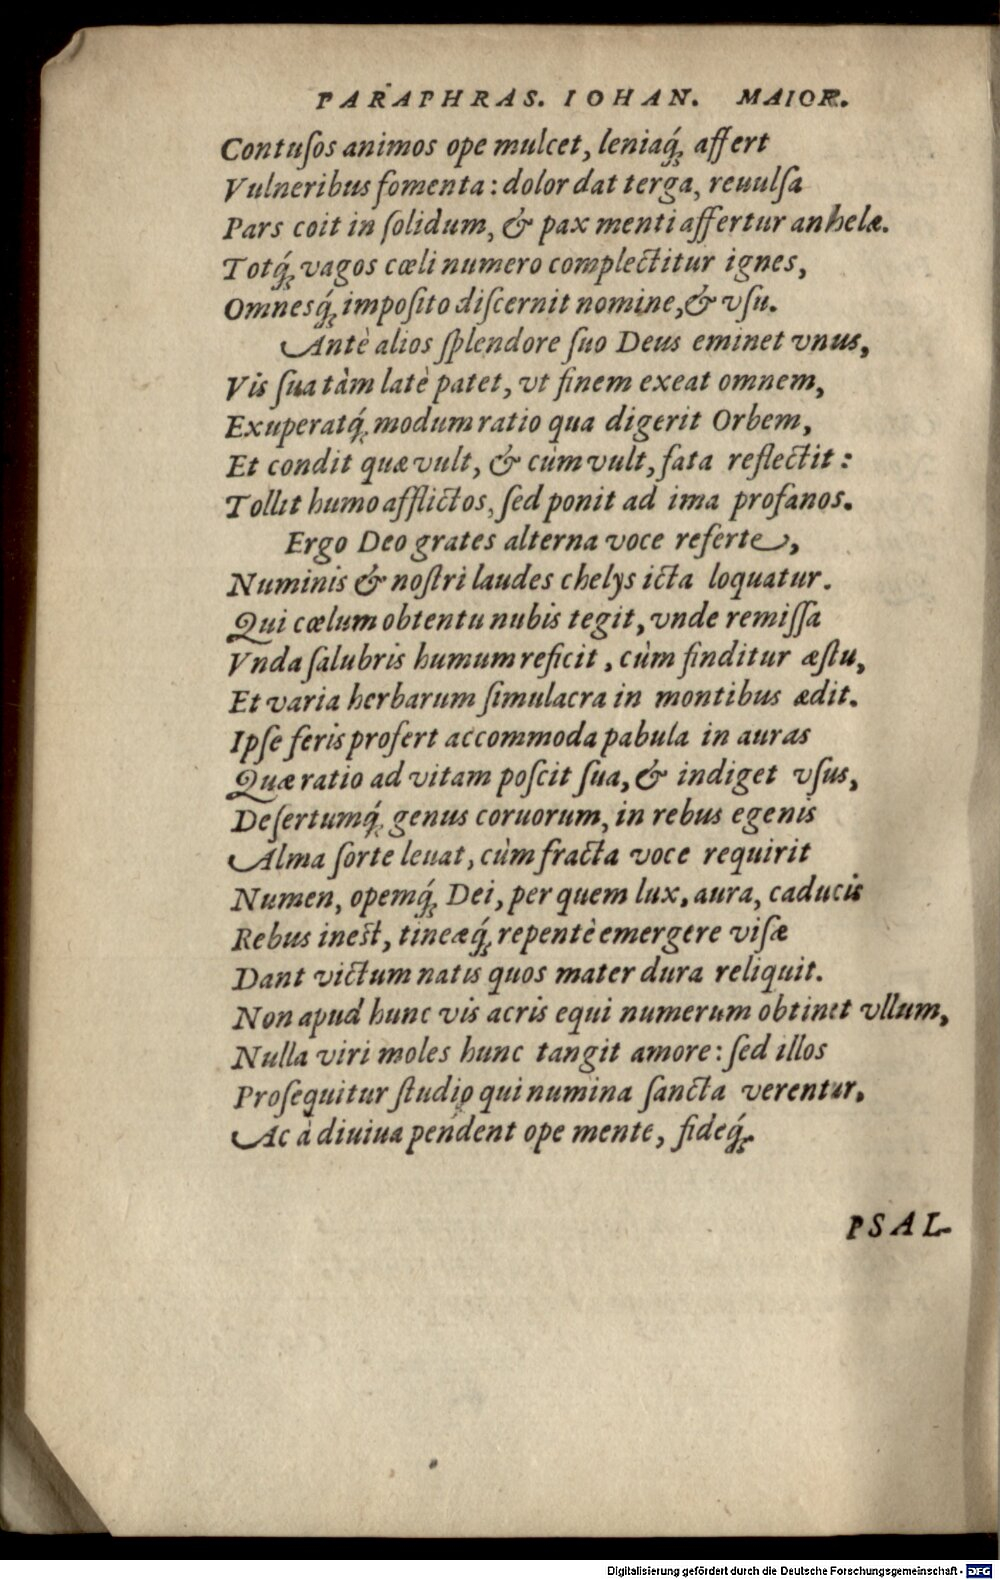 PARAPHRAS. IOHAN. MAIOR.
Contuſos animos ope mulcet, leniaq́; affert
Vulneribus fomenta: dolor dat terga, reuulſa
Pars coit in ſolidum, & pax menti affertur anhelæ.
Totq́; vagos cœli numero complectitur ignes,
Omnesq́; impoſito diſcernit nomine, & vſu.
Antè alios ſplendore ſuo Deus eminet vnus,
Vis ſua tàm latè patet, vt finem exeat omnem,
Exuperatq́; modum ratio qua digerit Orbem,
Et condit quæ vult, & cùm vult, fata reflectit:
Tollit humo afflictos, ſed ponit ad ima profanos.
Ergo Deo grates alterna voce referte,
Numinis & noſtri laudes chelys icta loquatur.
Qui cœlum obtentu nubis tegit, vnde remiſſa
Vnda ſalubris humum reficit, cùm finditur æſtu,
Et varia herbarum ſimulacra in montibus ædit.
Ipſe feris profert accommoda pabula in auras
Quæ ratio ad vitam poſcit ſua, & indiget vſus,
Deſertumq́; genus coruorum, in rebus egenis
Alma ſorte leuat, cùm fracta voce requirit
Numen, opemq́; Dei, per quem lux, aura, caducis
Rebus ineſt, tineæq́; repentè emergere viſæ
Dant victum natis quos mater dura reliquit.
Non apud hunc vis acris equi numerum obtinet vllum,
Nulla viri moles hunc tangit amore: ſed illos
Proſequitur ſtudio qui numina ſancta verentur,
Ac à diuiua pendent ope mente, fideq́;.
PSAL-
Digitalisierung gefördert durch die Deutsche Forschungsgemeinschaft - DFG